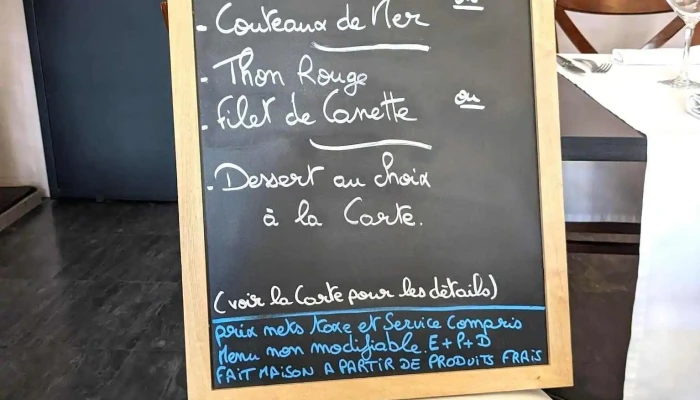 - Couteaux de Mer
ou
- Thon Rouge
ou
- Filet de Canette
- Dessert au choix
à la Carte.
(voir la Carte pour les détails)
prix nets taxe et Service Compris
Menu non modifiable. E + P + D
FAIT MAISON A PARTIR DE PRODUITS FRAIS